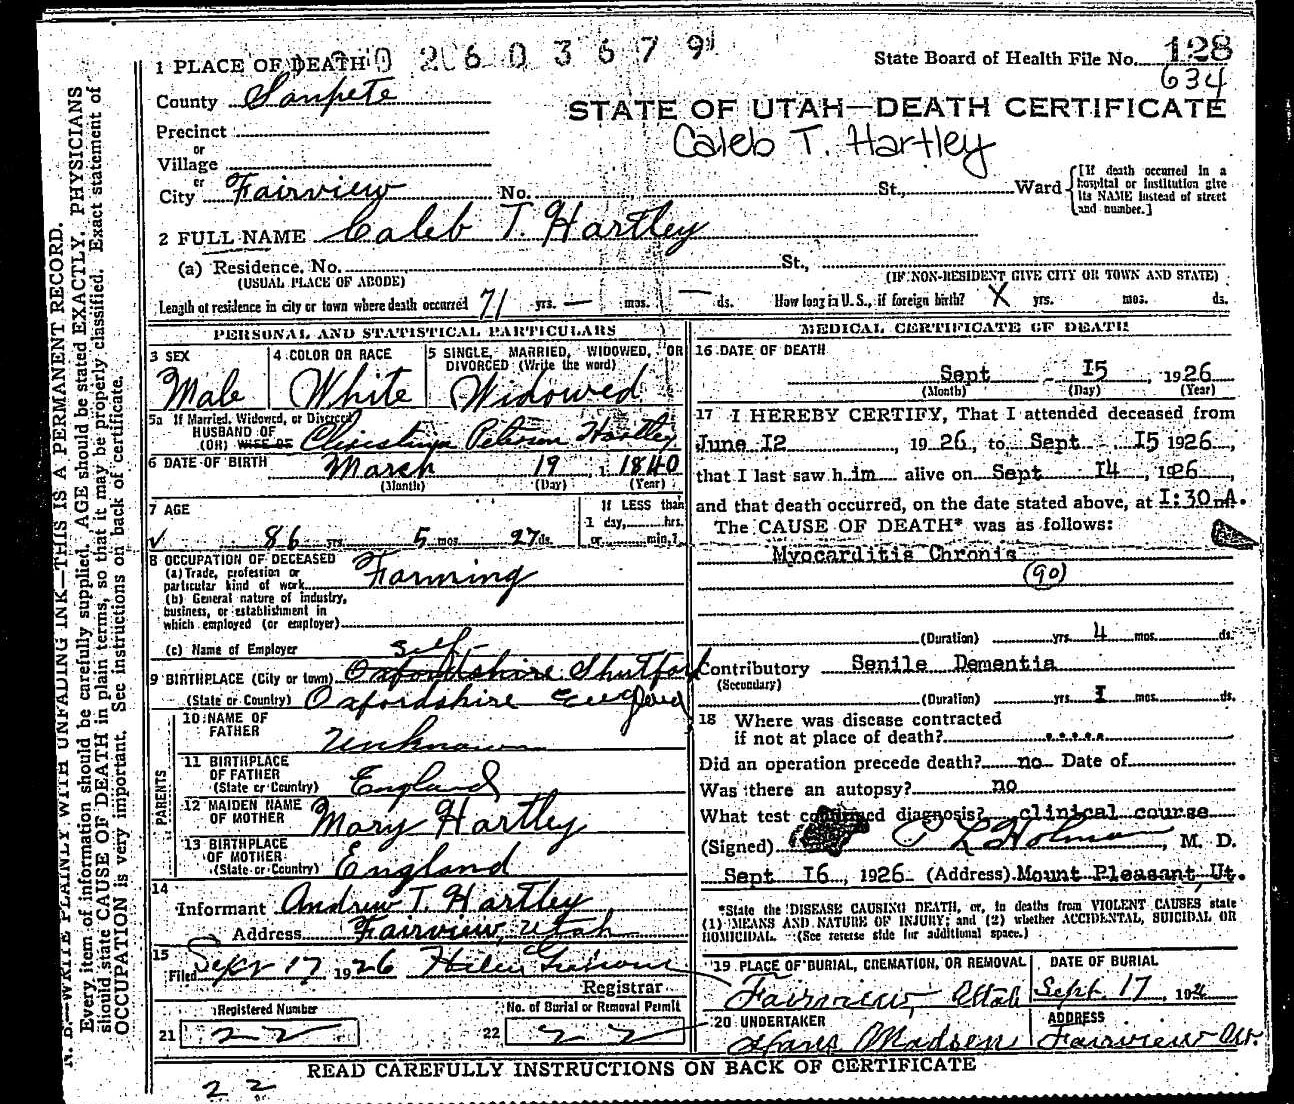 1 PLACE OF DEATH 0 2 6 0 3 6 7 9
State Board of Health File No. 128
634
County Sanpete
STATE OF UTAH—DEATH CERTIFICATE
Precinct
or
Village
Caleb T. Hartley
or
City Fairview No. St., Ward
[If death occurred in a hospital or institution give its NAME instead of street and number.]
2 FULL NAME Caleb T. Hartley
(a) Residence. No. St.,
(USUAL PLACE OF ABODE) (IF NON-RESIDENT GIVE CITY OR TOWN AND STATE)
Length of residence in city or town where death occurred 71 yrs. — mos. — ds. How long in U. S., if foreign birth? X yrs. mos. ds.
PERSONAL AND STATISTICAL PARTICULARS
3 SEX
Male
4 COLOR OR RACE
White
5 SINGLE, MARRIED, WIDOWED, OR DIVORCED (Write the word)
Widowed
5a If Married, Widowed, or Divorced
HUSBAND OF
(OR) WIFE OF Petersen Hartley
6 DATE OF BIRTH March 19 1840
(Month) (Day) (Year)
7 AGE
If LESS than
1 day, hrs.
86 yrs. 5 mos. 27 ds. or min.?
8 OCCUPATION OF DECEASED
(a) Trade, profession or
particular kind of work Farming
(b) General nature of industry,
business, or establishment in
which employed (or employer)
(c) Name of Employer self
9 BIRTHPLACE (City or town) Oxfordshire Shutford
(State or Country) Oxfordshire England
PARENTS
10 NAME OF
FATHER Unknown
11 BIRTHPLACE
OF FATHER
(State or Country) England
12 MAIDEN NAME
OF MOTHER Mary Hartley
13 BIRTHPLACE
OF MOTHER
(State or Country) England
14
Informant Andrew T. Hartley
Address Fairview, Utah
15
Filed Sept 17 1926
Registrar
Registered Number
21 22
No. of Burial or Removal Permit
22 22
MEDICAL CERTIFICATE OF DEATH
16 DATE OF DEATH
Sept 15, 1926
(Month) (Day) (Year)
17 I HEREBY CERTIFY, That I attended deceased from
June 12, 1926, to Sept 15 1926,
that I last saw him alive on Sept 14, 1926,
and that death occurred, on the date stated above, at 1:30 A.m.
The CAUSE OF DEATH* was as follows:
Myocarditis Chronis
(90)
(Duration) yrs. 4 mos. ds.
Contributory Senile Dementia
(Secondary)
(Duration) yrs. 1 mos. ds.
18 Where was disease contracted
if not at place of death? .....
Did an operation precede death? no Date of
Was there an autopsy? no
What test confirmed diagnosis? clinical course
(Signed) P L Holman, M. D.
Sept 16, 1926 (Address) Mount Pleasant, Ut.
*State the DISEASE CAUSING DEATH, or, in deaths from VIOLENT CAUSES state
(1) MEANS AND NATURE OF INJURY; and (2) whether ACCIDENTAL, SUICIDAL OR
HOMICIDAL. (See reverse side for additional space.)
19 PLACE OF BURIAL, CREMATION, OR REMOVAL
Fairview, Utah
DATE OF BURIAL
Sept. 17, 192
20 UNDERTAKER
Hans Madsen
ADDRESS
Fairview Ut.
READ CAREFULLY INSTRUCTIONS ON BACK OF CERTIFICATE
22
N. B.—WRITE PLAINLY WITH UNFADING INK—THIS IS A PERMANENT RECORD.
Every item of information should be carefully supplied. AGE should be stated EXACTLY. PHYSICIANS
should state CAUSE OF DEATH in plain terms, so that it may be properly classified. Exact statement of
OCCUPATION is very important. See instructions on back of certificate.